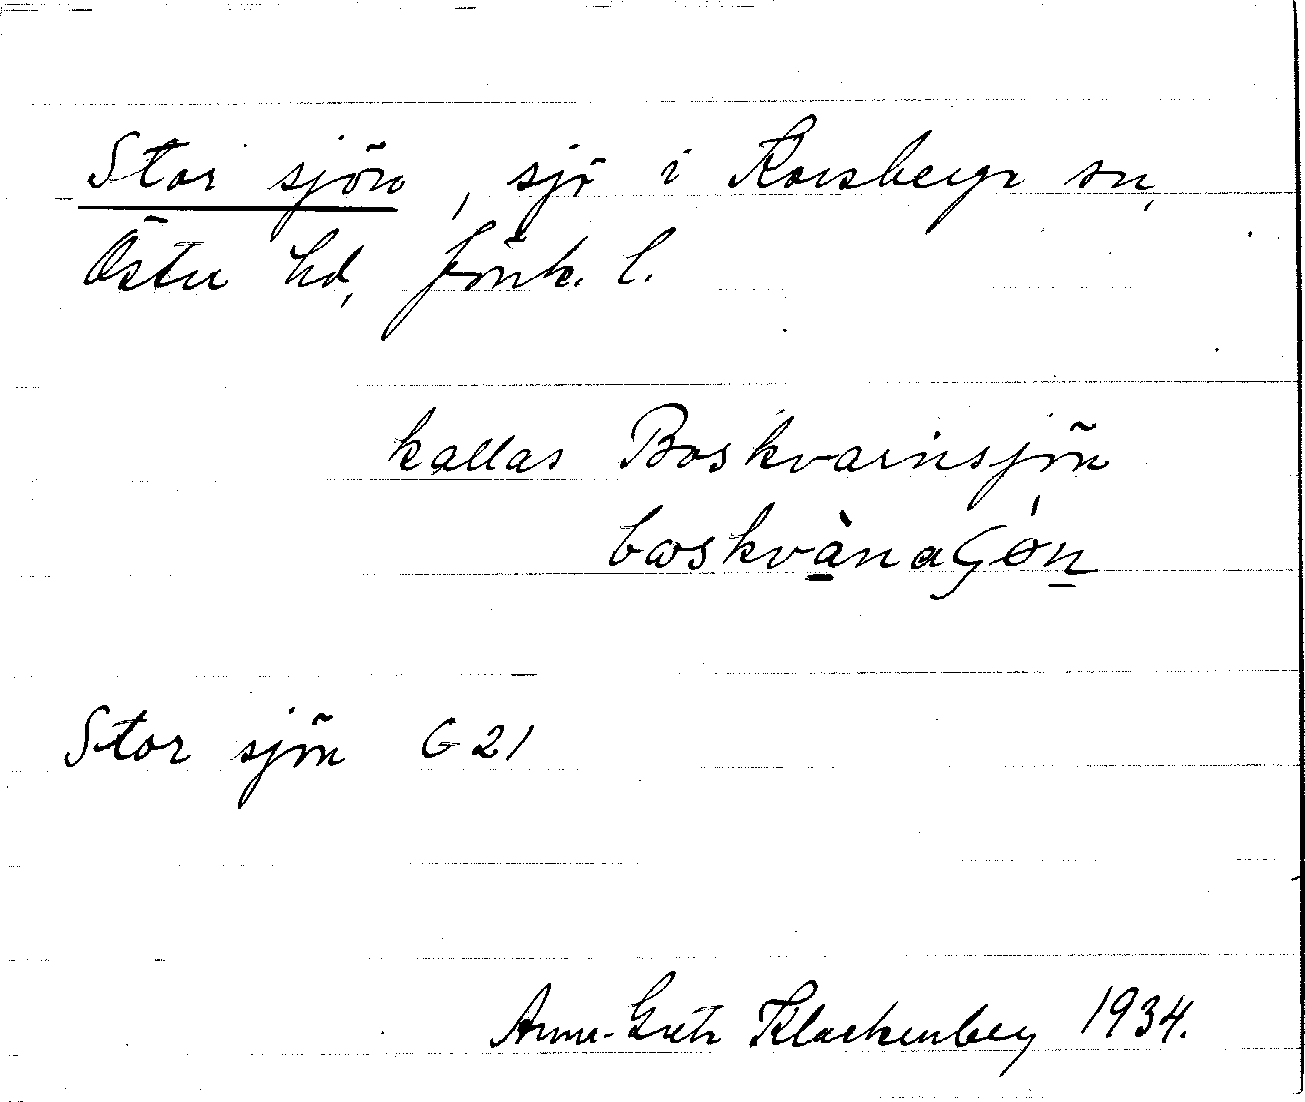 Stor sjön, sjö i Korsberga sn,
Östra hd, Jönk. l.
kallas Boskvarnsjön
Stor sjön G 21
Anna-Greta Klackenberg 1934.